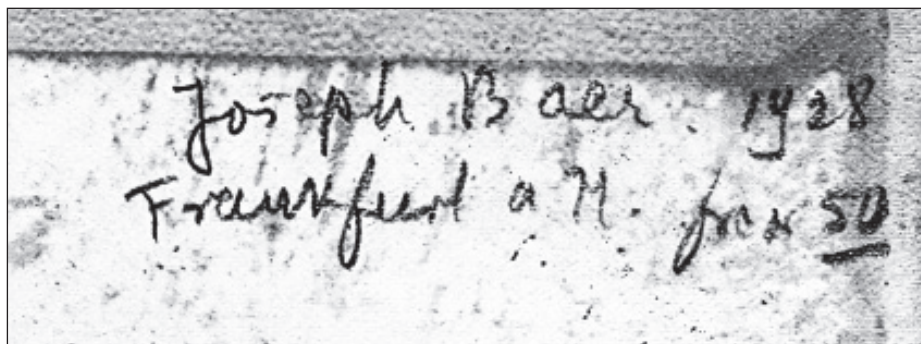 Joseph Baer. 1928
Frankfurt a M. for 50